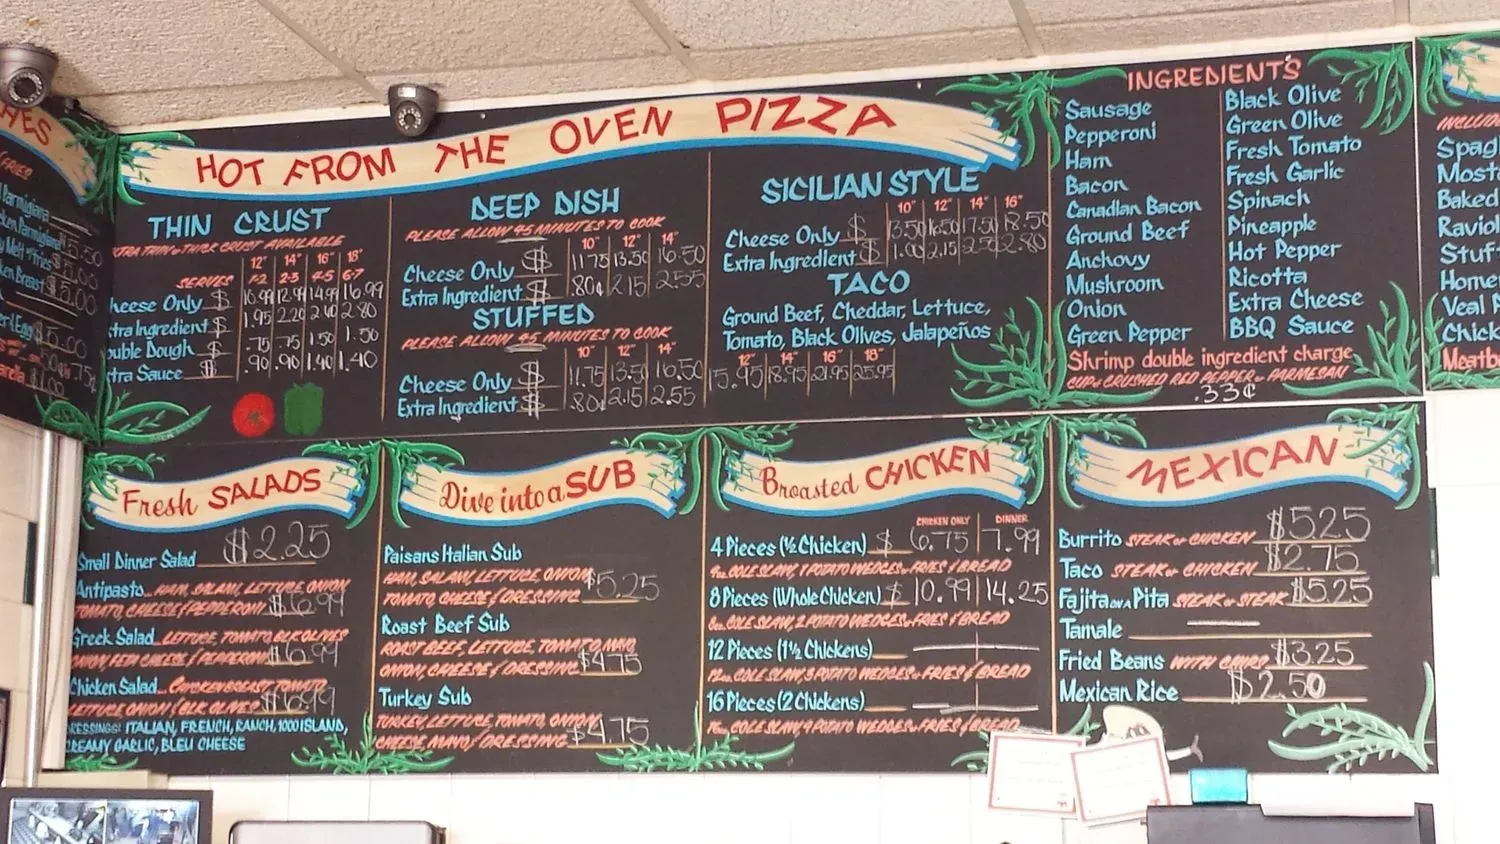 HOT FROM THE OVEN PIZZA
THIN CRUST
THIN or THICK CRUST AVAILABLE
12" 14" 16" 18"
SERVES 1-2 2-3 4-5 6-7
Cheese Only $ 10.99 12.99 14.99 16.99
Extra Ingredient $ 1.95 2.20 2.40 2.80
Double Dough $ .75 .75 1.50 1.50
Extra Sauce $ .90 .90 1.40 1.40
DEEP DISH
PLEASE ALLOW 45 MINUTES TO COOK
10" 12" 14"
Cheese Only $ 11.75 13.50 16.50
Extra Ingredient $ .80¢ 2.15 2.55
STUFFED
PLEASE ALLOW 45 MINUTES TO COOK
10" 12" 14"
Cheese Only $ 11.75 13.50 16.50
Extra Ingredient $ .80¢ 2.15 2.55
SICILIAN STYLE
10" 12" 14" 16"
Cheese Only $ 13.50 16.50 17.50 18.50
Extra Ingredient $ 1.00 2.15 2.50 2.80
TACO
Ground Beef, Cheddar, Lettuce,
Tomato, Black Olives, Jalapeños
12" 14" 16" 18"
15.95 18.95 21.95 25.95
INGREDIENTS
Sausage
Pepperoni
Ham
Bacon
Canadian Bacon
Ground Beef
Anchovy
Mushroom
Onion
Green Pepper
Black Olive
Green Olive
Fresh Tomato
Fresh Garlic
Spinach
Pineapple
Hot Pepper
Ricotta
Extra Cheese
BBQ Sauce
Shrimp double ingredient charge
CUP of CRUSHED RED PEPPER or PARMESAN
.33¢
Fresh SALADS
Small Dinner Salad $2.25
Antipasto... HAM, SALAMI, LETTUCE, ONION
TOMATO, CHEESE & PEPPERONI $6.99
Greek Salad... LETTUCE, TOMATO, BLK OLIVES
ONION, FETA CHEESE & PEPPERONI $6.99
Chicken Salad... CHICKEN BREAST, TOMATO
LETTUCE, ONION & BLK OLIVES $6.99
DRESSINGS: ITALIAN, FRENCH, RANCH, 1000 ISLAND,
CREAMY GARLIC, BLEU CHEESE
Dive into a SUB
Paisans Italian Sub
HAM, SALAMI, LETTUCE, ONION
TOMATO, CHEESE & DRESSING $5.25
Roast Beef Sub
ROAST BEEF, LETTUCE, TOMATO, MAYO
ONION, CHEESE & DRESSING $4.75
Turkey Sub
TURKEY, LETTUCE, TOMATO, ONION
CHEESE, MAYO & DRESSING $4.75
Broasted CHICKEN
CHICKEN ONLY DINNER
4 Pieces (½ Chicken) $ 6.75 7.99
4oz. COLE SLAW, 1 POTATO WEDGES or FRIES & BREAD
8 Pieces (Whole Chicken) $ 10.99 14.25
8oz. COLE SLAW, 2 POTATO WEDGES or FRIES & BREAD
12 Pieces (1½ Chickens)
12oz. COLE SLAW, 3 POTATO WEDGES or FRIES & BREAD
16 Pieces (2 Chickens)
16oz. COLE SLAW, 4 POTATO WEDGES or FRIES & BREAD
MEXICAN
Burrito STEAK or CHICKEN $5.25
Taco STEAK or CHICKEN $2.75
Fajita ON A Pita STEAK or STEAK $5.25
Tamale
Fried Beans WITH CHIPS $3.25
Mexican Rice $2.50